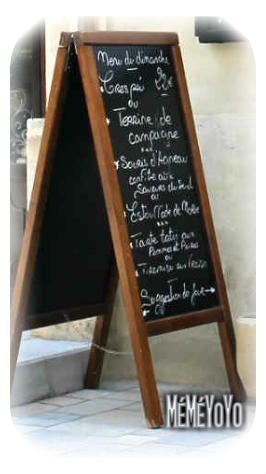 Menu du dimanche
22€
ou
Terrine de
campagne
***
Souris d'Agneau
confite aux
Saveurs du Sud
ou
***
Tarte tatin aux
Pommes et Poires
ou
Tiramisu aux Fraises
Suggestion du jour →
MéMéYoYo